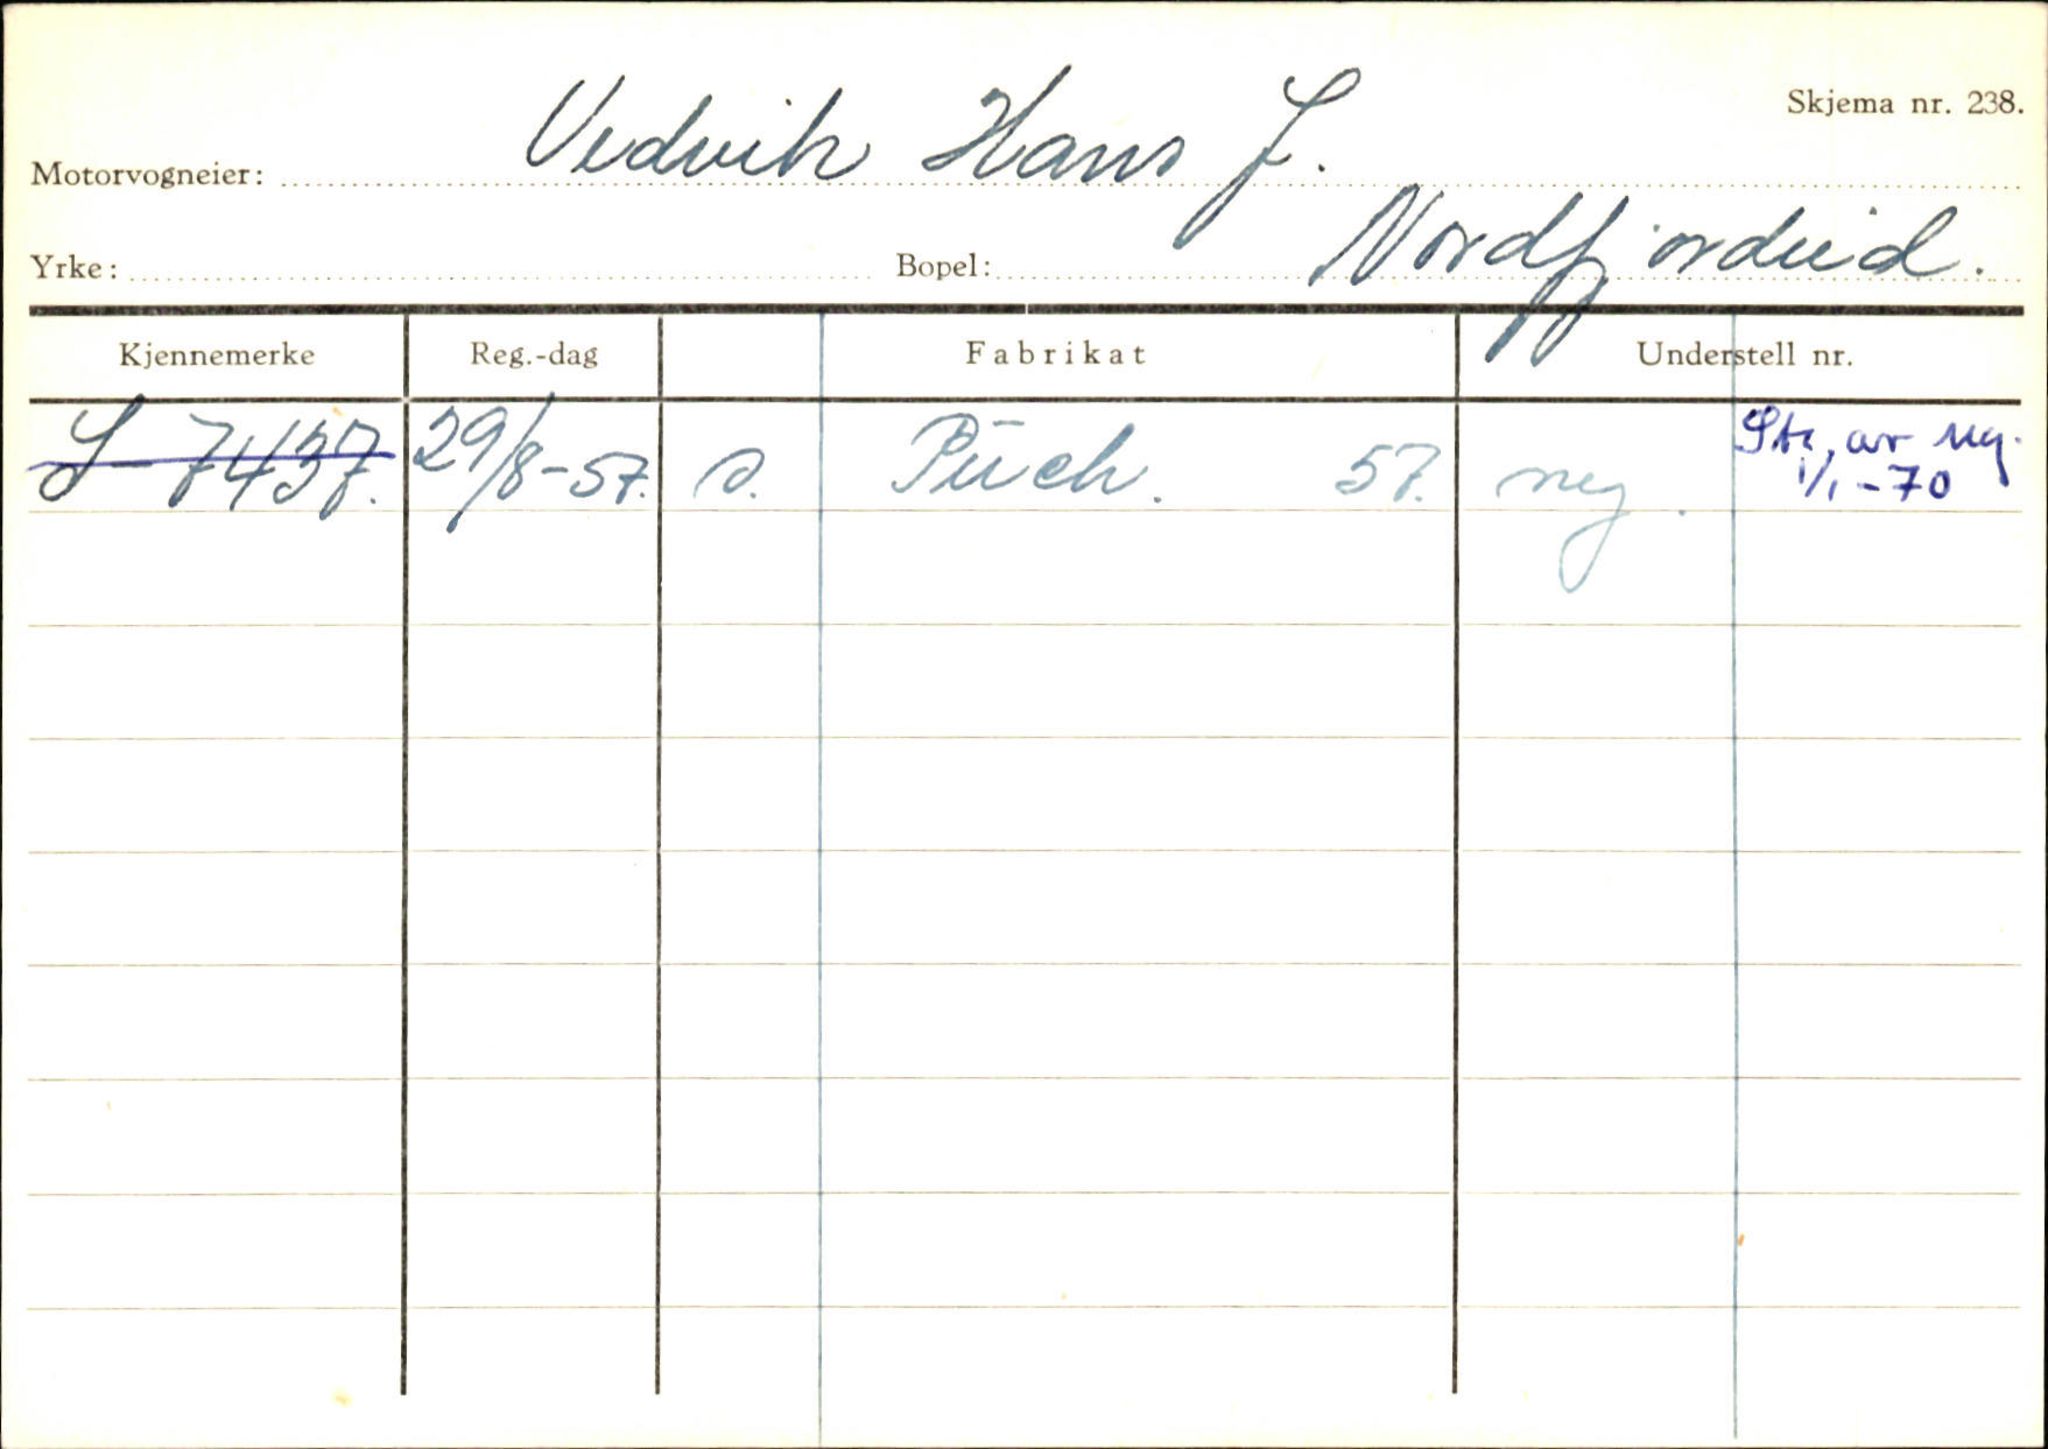 Skjema nr. 238.
Motorvogneier: Vedvik Hans J.
Yrke: Bopel: Nordfjordeid.
Kjennemerke Reg.-dag Fabrikat Understell nr.
S-7437. 29/8-57. s. Püch. 57. reg. Str. av reg.
1/1-70